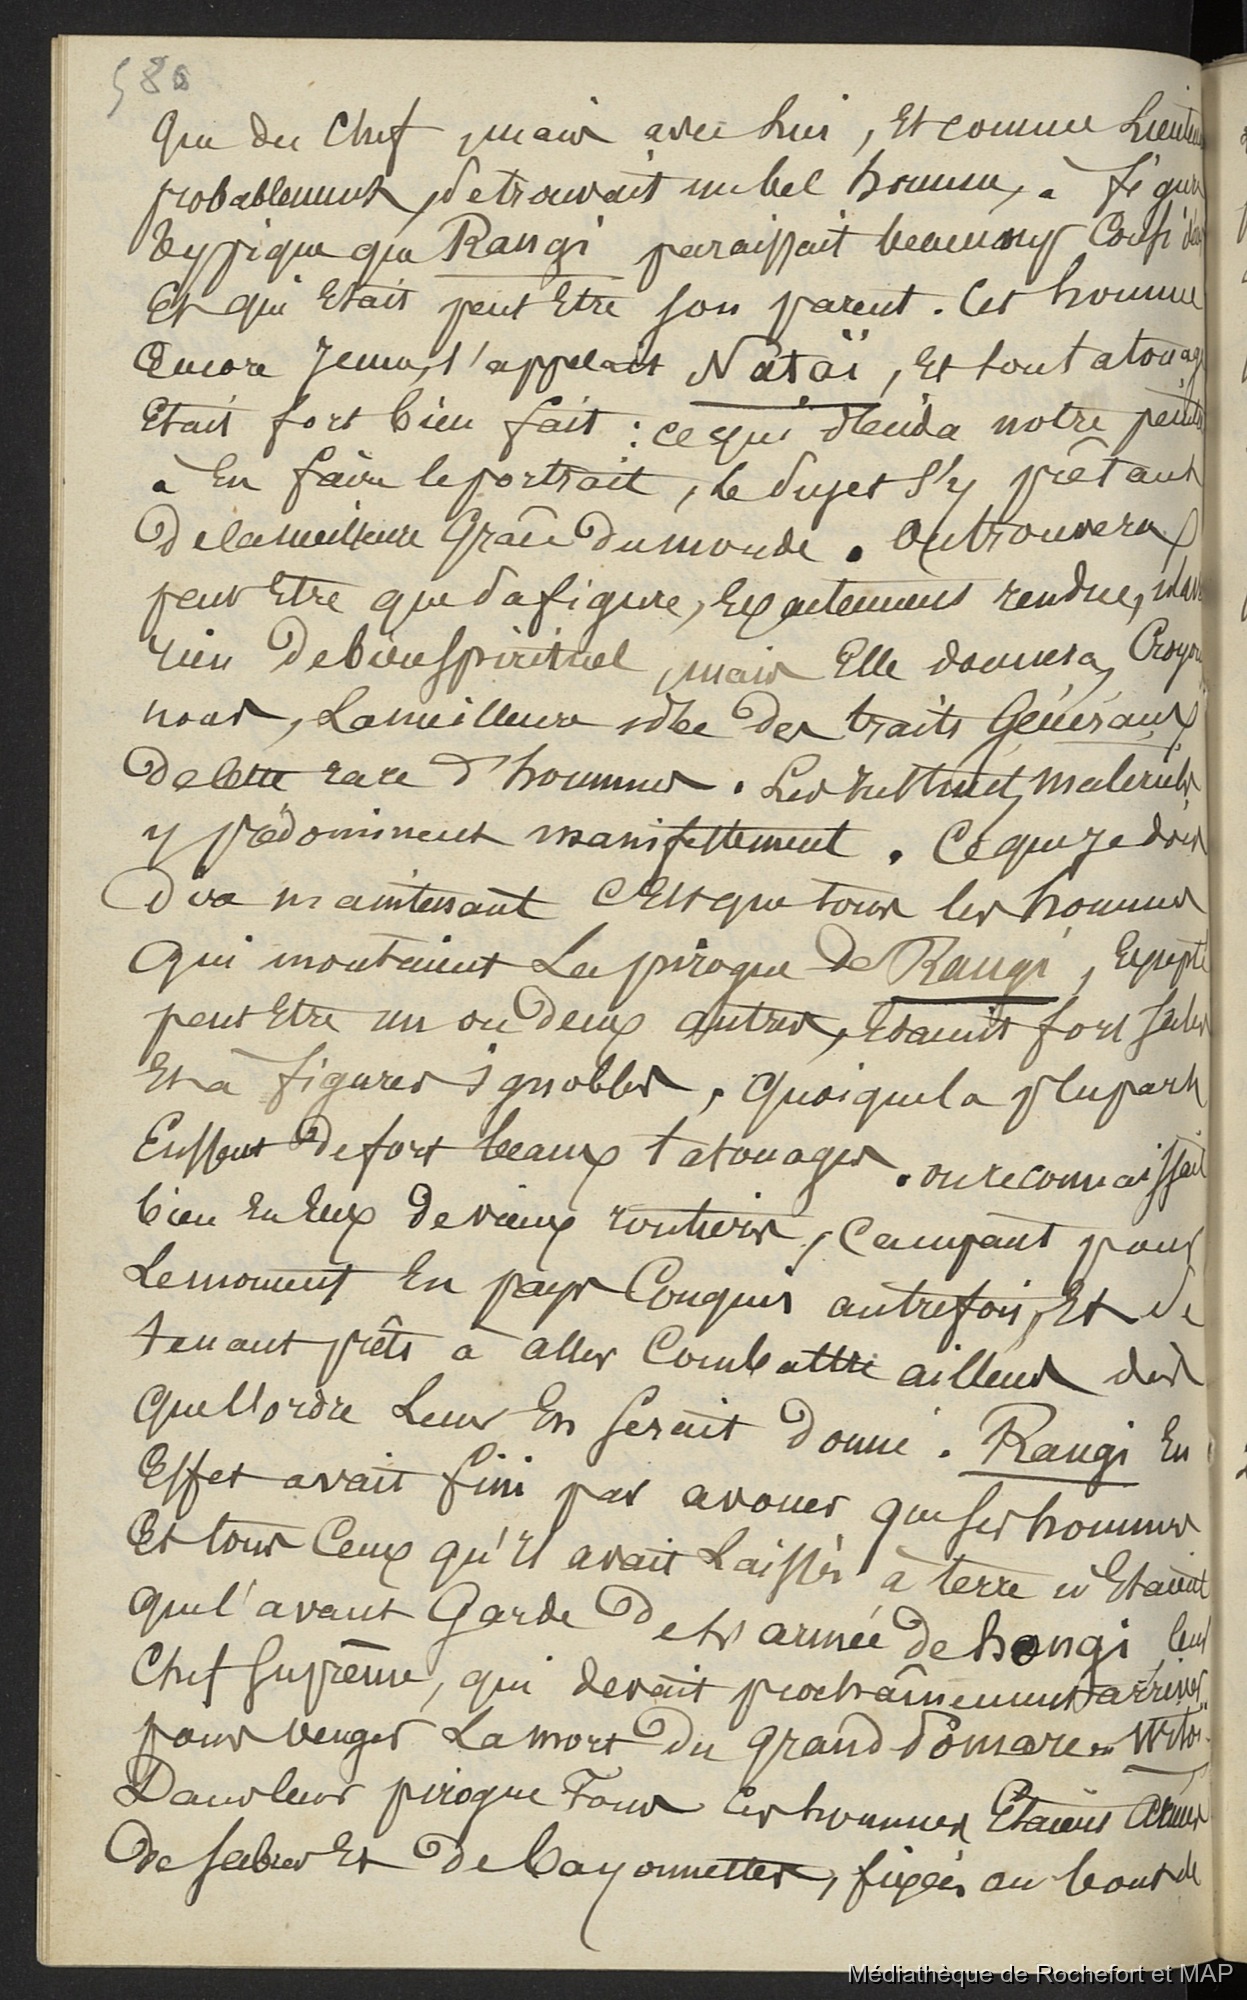 586
que du Chef, mais avec lui, Et comme Lieuten
probablement, se trouvait un bel homme, à figure
typique que Rangi paraissait beaucoup Considérer
Et qui Etait peut Etre son parent. Cet homme
Encore Jeune, s'appelait Nataï, Et son tatouage
Etait fort bien fait : ce qui décida notre peintre
à En faire le portrait, le sujet s'y prêtant
De la meilleure Grâce du monde. On trouvera
peut Etre que sa figure, Exactement rendue, n'a
rien De bien spirituel, mais Elle donnera, Croyons
nous, La meilleure idée Des traits Généraux
De cette race D'hommes. Les instincts matériels
y prédominent manifestement. Ce que je dois
Dire maintenant C'Est que tous les hommes
Qui montaient La pirogue De Rangi, Excepté
peut Etre un ou deux autres, Etaient fort sales
Et à figures ignobles, quoique la plupart
Eussent De fort beaux tatouages. on reconnaissait
bien En Eux De vieux routiers, Campant pour
Le moment En pays Conquis autrefois, Et se
tenant prêts à aller Combattre ailleurs dès
que l'ordre Leur En serait Donné. Rangi En
Effet avait fini par avouer que ses hommes
Et tous Ceux qu'il avait Laissés à terre n'Etaient
que l'avant Garde De l'armée de hongi, leur
Chef Suprême, qui devait prochainement arriver
pour venger La mort Du grand Pômare..
Dans leur pirogue Tous Les hommes Etaient Armés
De sabres Et De bayonnettes, fixées au bout de
Médiathèque de Rochefort et MAP